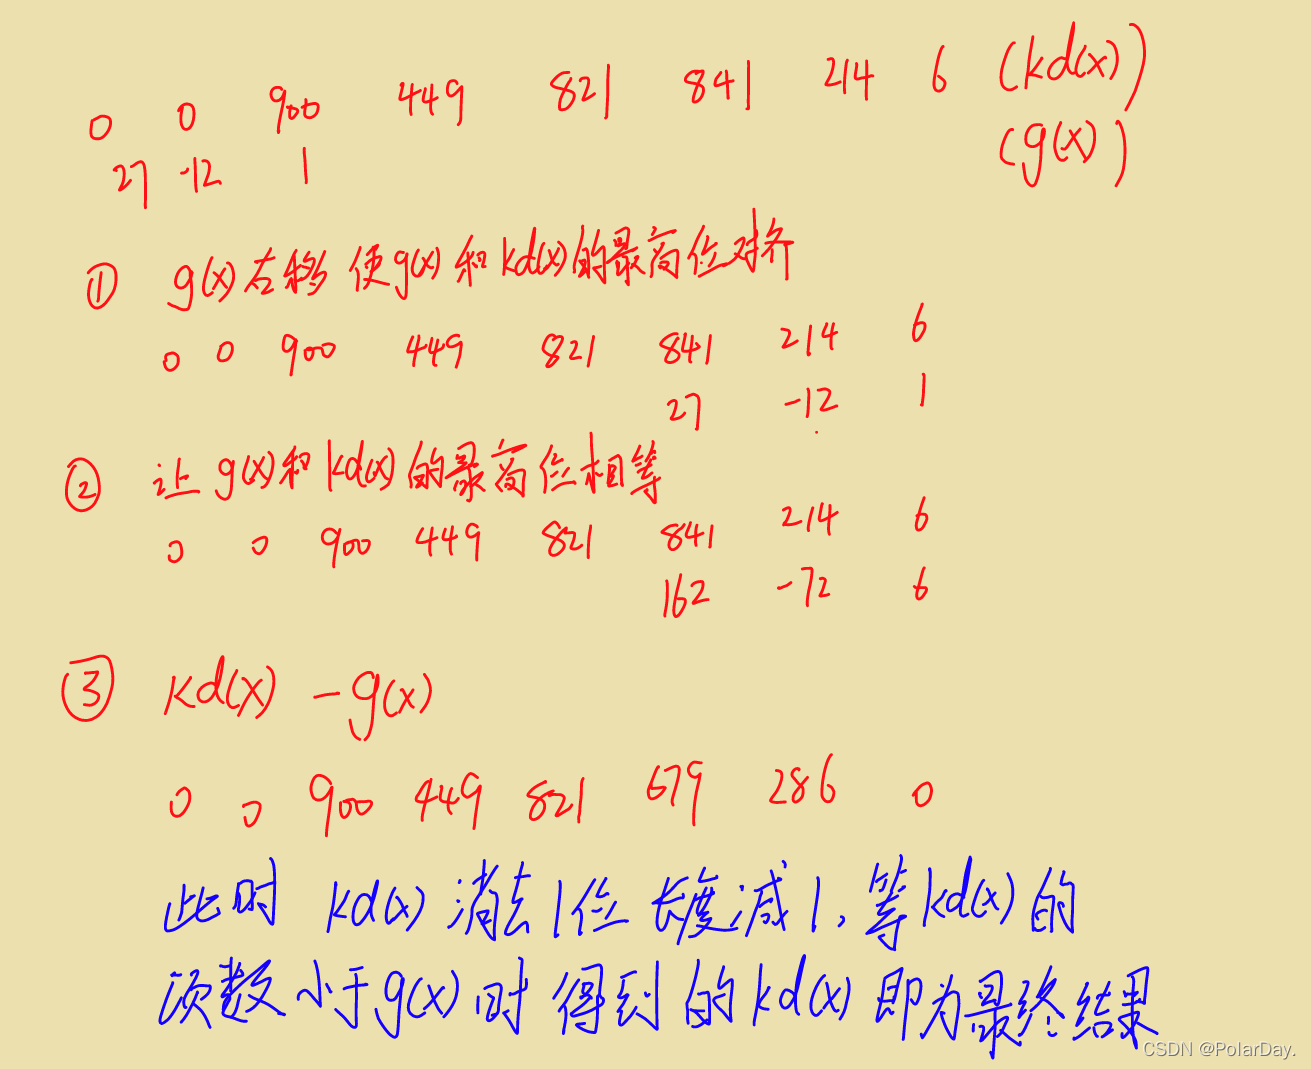 0 0 900 449 821 841 214 6 (kd(x))
27 -12 1 (g(x))
① g(x)右移 使g(x)和kd(x)的最高位对齐
0 0 900 449 821 841 214 6
27 -12 1
② 让g(x)和kd(x)的最高位相等
0 0 900 449 821 841 214 6
162 -72 6
③ kd(x) -g(x)
0 0 900 449 821 679 286 0
此时 kd(x) 消去1位 长度减1,等kd(x)的
次数小于g(x)时 得到的kd(x)即为最终结果
CSDN @PolarDay.